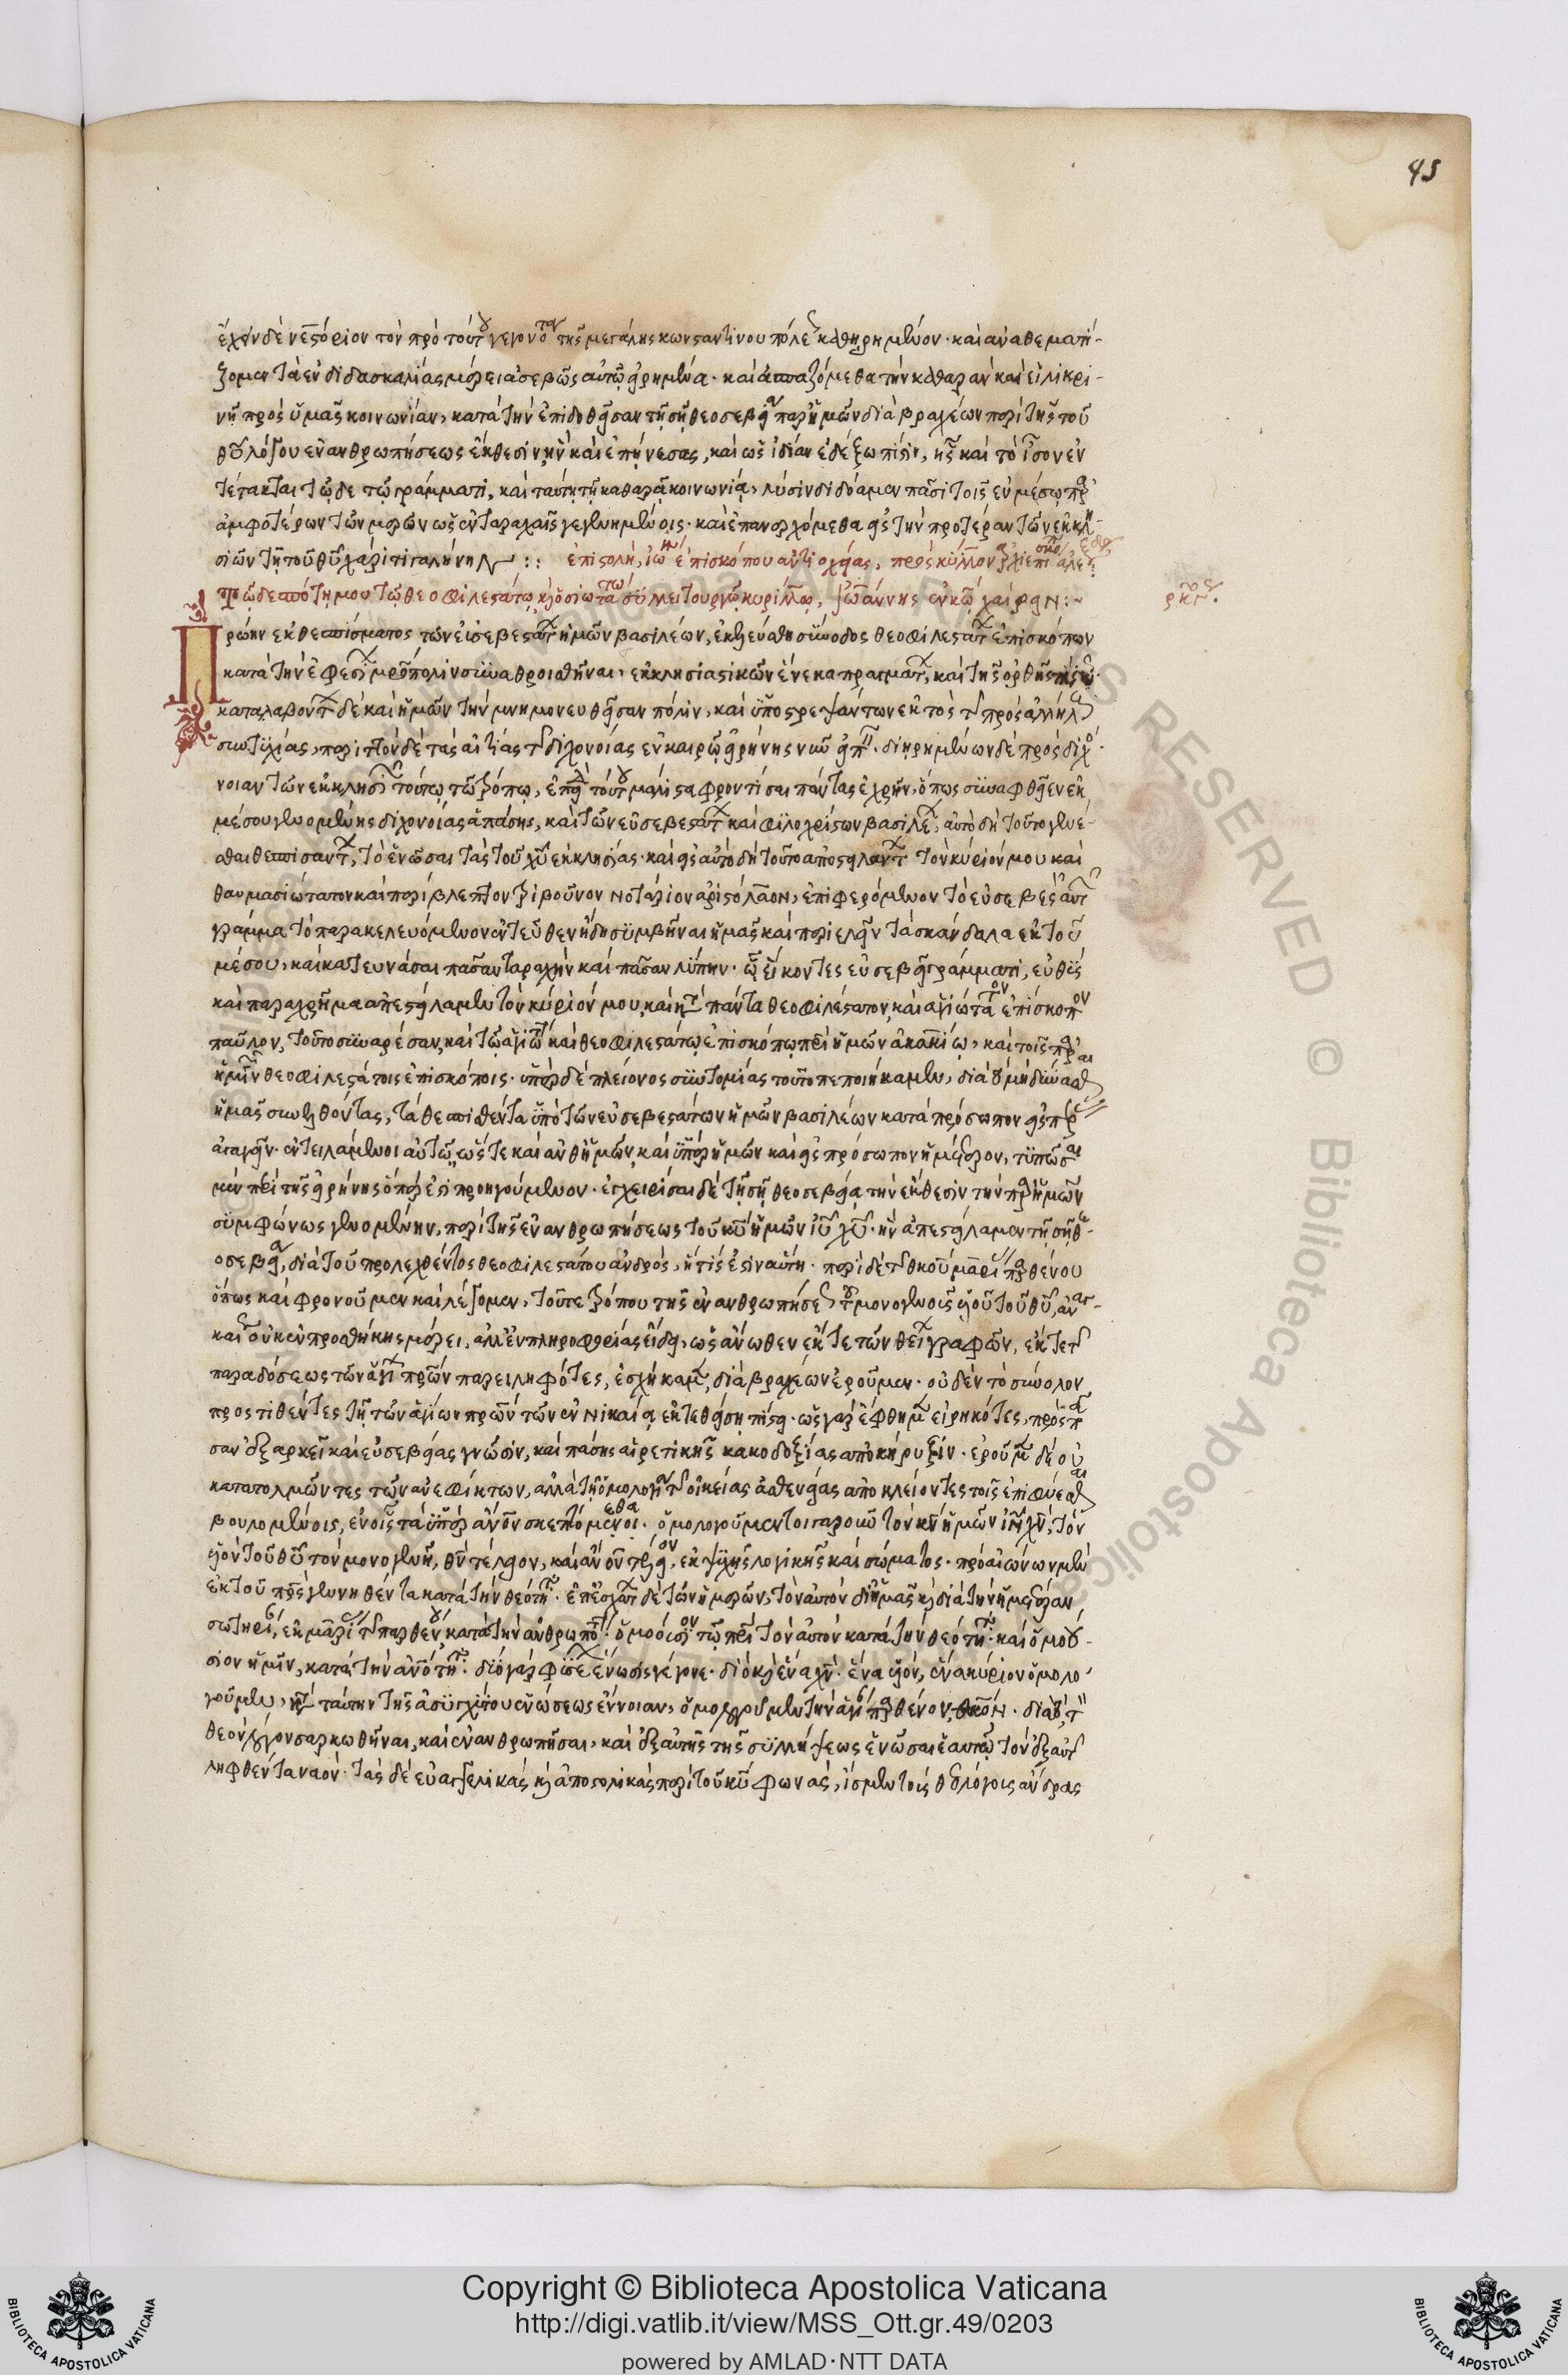 45
ἔχειν δὲ νεστόριον τὸν πρὸ τούτου γεγονότα τῆς μεγάλης κωνσταντίνου πόλεως καθῃρημένον· καὶ ἀναθεματί-
ζομεν τὰ ἐν διδασκαλίας μέρει ἀσεβῶς αὐτῷ εἰρημένα· καὶ ἀσπαζόμεθα τὴν καθαρὰν καὶ εἰλικρι-
νῆ πρὸς ὑμᾶς κοινωνίαν, κατὰ τὴν ἐπιδοθεῖσαν τῇ σῇ θεοσεβείᾳ παρ' ἡμῶν διὰ βραχέων περὶ τῆς τοῦ
θυ λόγου ἐνανθρωπήσεως ἔκθεσιν, ἣν καὶ ἐπῄνεσας, καὶ ὡς ἰδίαν ἐδέξω πίστιν, ἧς καὶ τὸ ἴσον ἐν
τέτακται τῷδε τῷ γράμματι, καὶ ταύτῃ τῇ καθαρᾷ κοινωνίᾳ, λύσιν διδόαμεν πᾶσι τοῖς ἐν μέσῳ παρ'
ἀμφοτέρων τῶν μερῶν ὡς ἐν ταραχαῖς γεγενημένοις· καὶ ἐπανερχόμεθα εἰς τὴν προτέραν τῶν ἐκκλη-
σιῶν τῇ τοῦ θυ χάριτι γαλήνην :: ἐπιστολὴ, ἰω ἐπισκόπου ἀντιοχείας, πρὸς κύριλλον ἀρχιεπίσκοπον ἀλε
τῷ δεσπότῃ μου τῷ θεοφιλεστάτῳ κὶ ὁσιωτάτω συλλειτουργῷ κυρίλλῳ, ἰωάννης ἐν κω χαίρειν :~
ρκγος.
Πρώην ἐκ θεσπίσματος τῶν εὐσεβεστάτων ἡμῶν βασιλέων, ἐκελεύσθη σύνοδος θεοφιλεστάτων ἐπισκόπων
κατὰ τὴν ἐφεσίων μρόπολιν συναθροισθῆναι, ἐκκλησιαστικῶν ἕνεκα πραγμάτων, καὶ τῆς ὀρθῆς πίστεως·
καταλαβόντων δὲ καὶ ἡμῶν τὴν μνημονευθεῖσαν πόλιν, καὶ ὑποστρεψάντων ἐκτὸς τῆς πρὸς ἀλλήλους
συντυχίας, περιττὸν δὲ τὰς αἰτίας τῆς διχονοίας ἐν καιρῷ εἰρήνης νῦν εἰπεῖν. διῃρημένων δὲ πρὸς διχό-
νοιαν τῶν ἐκκλησιῶν τούτῳ τῷ τρόπῳ, ἐπειδὴ τούτου μάλιστα φροντίσαι πάντας ἐχρῆν, ὅπως συναφθεῖεν ἐκ
μέσου γενομένης διχονοίας ἁπάσης, καὶ τῶν εὐσεβεστάτων καὶ φιλοχρίστων βασιλέων, αὐτὸ δὴ τοῦτο γενέ-
σθαι θεσπισάντων, τὸ ἑνῶσαι τὰς τοῦ χυ ἐκκλησίας· καὶ εἰς αὐτὸ δὴ τοῦτο ἀποστειλάντων τὸν κύριόν μου καὶ
θαυμασιώτατον καὶ περίβλεπτον τριβοῦνον νοτάριον ἀριστόλαον, ἐπιφερόμενον τὸ εὐσεβὲς αὐτῶν
γράμμα τὸ παρακελευόμενον ἐντεῦθεν ἤδη συμβῆναι ἡμᾶς καὶ περιελεῖν τὰ σκάνδαλα ἐκ τοῦ
μέσου, καὶ κατευνάσαι πᾶσαν ταραχὴν καὶ πᾶσαν λύπην· ᾧ εἴκοντες εὐσεβεῖ γράμματι, εὐθὺς
καὶ παραχρῆμα ἀπεστείλαμεν τὸν κύριόν μου, καὶ κατὰ πάντα θεοφιλέστατον, καὶ ἁγιώτατον ἐπίσκοπον
παῦλον, τοῦτο συναρέσαν, καὶ τῷ ἁγιωτάτῳ καὶ θεοφιλεστάτῳ ἐπισκόπῳ πρὶ ἡμῶν ἀκακίῳ, καὶ τοῖς παρ'
ἡμῖν θεοφιλεστάτοις ἐπισκόποις· ὑπὲρ δὲ πλείονος συντομίας τοῦτο πεποιήκαμεν, διὰ τὸ μὴ δύνασθαι
ἡμᾶς συνελθόντας, τὰ θεσπισθέντα ὑπὸ τῶν εὐσεβεστάτων ἡμῶν βασιλέων κατὰ πρόσωπον εἰς πέρας
ἀγαγεῖν· ἐντειλάμενοι αὐτῷ, ὥστε καὶ ἀνθ' ἡμῶν, καὶ ὑπὲρ ἡμῶν καὶ εἰς πρόσωπον ἡμέτερον, τυπῶσαι
μὲν περὶ τῆς εἰρήνης ὅπερ ἐστὶ προηγούμενον· ἐγχειρίσαι δὲ τῇ σῇ θεοσεβείᾳ τὴν ἔκθεσιν τὴν παρ' ἡμῶν
συμφώνως γενομένην, περὶ τῆς ἐνανθρωπήσεως τοῦ κυ ἡμῶν ιυ χυ· ἣν ἀπεστείλαμεν τῇ σῇ θε-
οσεβείᾳ, διὰ τοῦ προλεχθέντος θεοφιλεστάτου ἀνδρός, ἥτις ἐστὶν αὕτη· περὶ δὲ τῆς θκου μαρίας παρθένου
ὅπως καὶ φρονοῦμεν καὶ λέγομεν, τοῦ τε τρόπου τῆς ἐνανθρωπήσεως τοῦ μονογενοῦς υἱοῦ τοῦ θυ, ἀναγ-
καίως οὐκ ἐν προσθήκης μέρει, ἀλλ' ἐν πληροφορίας εἴδει, ὡς ἄνωθεν ἔκ τε τῶν θείων γραφῶν, ἔκ τε τῆς
παραδόσεως τῶν ἁγίων πρων παρειληφότες, ἐσχήκαμεν, διὰ βραχέων ἐροῦμεν· οὐδὲν τὸ σύνολον
προστιθέντες τῇ τῶν ἁγίων πρων τῶν ἐν νικαίᾳ ἐκτεθείσῃ πίστει· ὡς γὰρ ἔφθημεν εἰρηκότες, πρὸς πᾶ
σαν ἐξαρκεῖ καὶ εὐσεβείας γνῶσιν, καὶ πάσης αἱρετικῆς κακοδοξίας ἀποκήρυξιν· ἐροῦμεν δὲ οὐ
κατατολμῶντες τῶν ἀνεφίκτων, ἀλλὰ τῇ ὁμολογίᾳ τῆς οἰκείας ἀσθενείας ἀποκλείοντες τοῖς ἐπιφύεσθαι
βουλομένοις, ἐν οἷς τὰ ὑπὲρ ανον σκεπτόμεθα. ὁμολογοῦμεν τοιγαροῦν τὸν κν ἡμῶν ιν χν, τὸν
υἱὸν τοῦ θυ τὸν μονογενῆ, θν τέλειον, καὶ ανον τέλειον, ἐκ ψυχῆς λογικῆς καὶ σώματος· πρὸ αἰώνων μὲν
ἐκ τοῦ πρς γεννηθέντα κατὰ τὴν θεότητα· ἐπ' ἐσχάτων δὲ τῶν ἡμερῶν, τὸν αὐτὸν δι' ἡμᾶς κὶ διὰ τὴν ἡμετέραν
σωτηρίαν, ἐκ μαρίας τῆς παρθένου κατὰ τὴν ἀνθρωπότητα· ὁμοούσιον τῷ πρι τὸν αὐτὸν κατὰ τὴν θεότητα· καὶ ὁμοού-
σιον ἡμῖν, κατὰ τὴν ανότητα· δύο γὰρ φύσεων ἕνωσις γέγονε· διὸ κὶ ἕνα χν· ἕνα υἱόν, ἕνα κύριον ὁμολο
γοῦμεν, κατὰ ταύτην τῆς ἀσυγχύτου ἑνώσεως ἔννοιαν, ὁμολογοῦμεν τὴν ἁγίαν παρθένον, θκον· διὰ τὸ τὸν
θεὸν λόγον σαρκωθῆναι, καὶ ἐνανθρωπῆσαι, καὶ ἐξ αὐτῆς τῆς συλλήψεως ἑνῶσαι ἑαυτῷ τὸν ἐξ αὐτῆς
ληφθέντα ναόν· τὰς δὲ εὐαγγελικὰς κὶ ἀποστολικὰς περὶ τοῦ κυ φωνάς, ἴσμεν τοὺς θεολόγους ἄνδρας
Copyright © Biblioteca Apostolica Vaticana
http://digi.vatlib.it/view/MSS_Ott.gr.49/0203
powered by AMLAD·NTT DATA